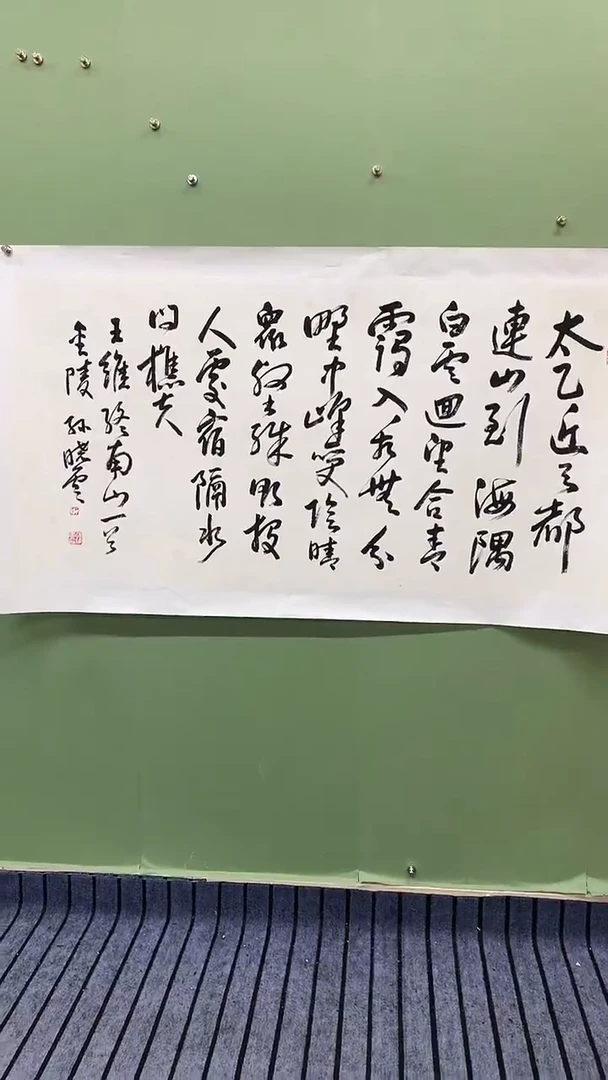 太乙近天都
連山到海隅
白雲迴望合青
靄入看無分
野中峰變陰晴
衆壑殊欲投
人處宿隔水
問樵夫
王維終南山一首
金陵孫曉雲